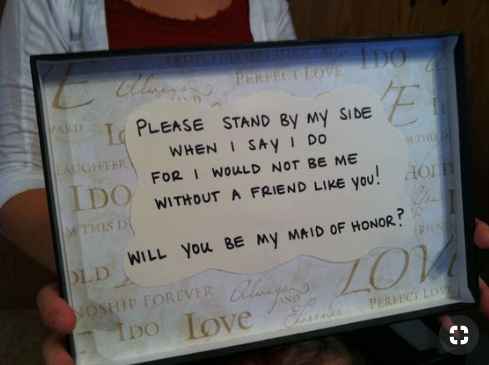 I DO
Always
AND
PERFECT LOVE
PLEASE STAND BY MY SIDE
WHEN I SAY I DO
FOR I WOULD NOT BE ME
WITHOUT A FRIEND LIKE YOU!
I DO
WILL YOU BE MY MAID OF HONOR?
LOVE
FOREVER
Always
AND
PERFECT LOVE
I DO
Love